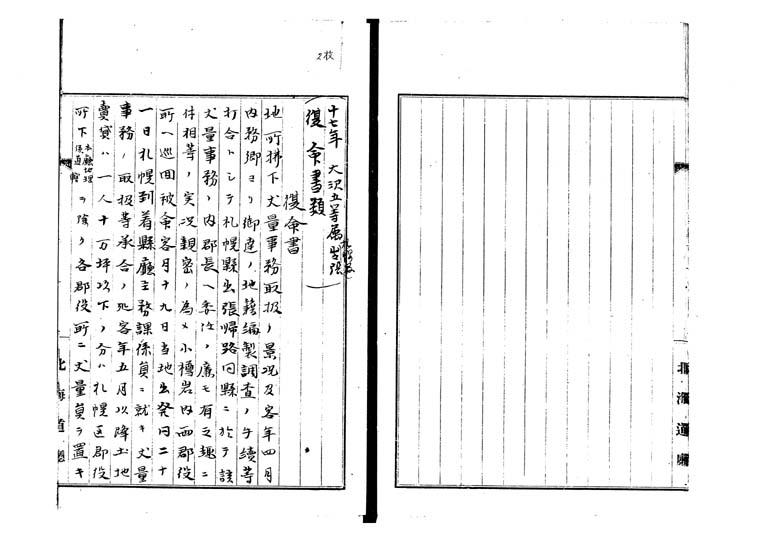 2枚
十七年 大沢五等属出張
(復命書類)
札幌县
復命書
地所拂下丈量事務取扱ノ景况及客年四月
内務卿ヨリ御達ノ地籍編製調査ノ手續等
打合トシテ札幌縣出張帰路同縣ニ於テ該
丈量事務ノ内郡長ヘ委任ノ廉モ有之趣ニ
付相等ノ実况親密ノ為メ小樽岩内両郡役
所ヘ巡回被命客月十九日当地出発同二十
一日札幌到着縣廳主務課係員ニ就キ丈量
事務ノ取扱等承合ノ処客年五月以降土地
賣貸ハ一人十万坪以下ノ分ハ札幌区郡役
所下本廳地理係直轄ヲ除ク各郡役所ニ丈量員ヲ置キ
北海道廳
北海道廳